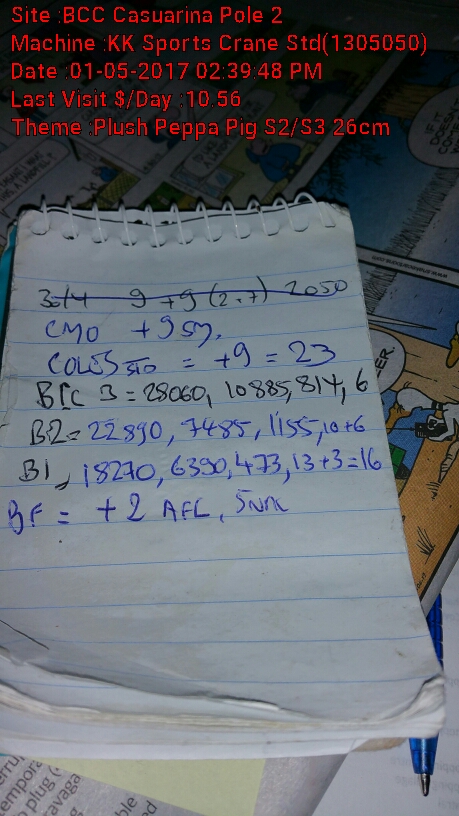 Site :BCC Casuarina Pole 2
Machine :KK Sports Crane Std(1305050)
Date :01-05-2017 02:39:48 PM
Last Visit $/Day :10.56
Theme :Plush Peppa Pig S2/S3 26cm
30/4 9 +9 (2.7) 2050
CMO +9 SM.
COLES STD = +9 = 23
BCC 3 = 28060, 10885, 814, 6
B2 = 22890, 7485, 1155, 10+6
B1, 18270, 6390, 473, 13+3=16
BF = + 2 AFL,